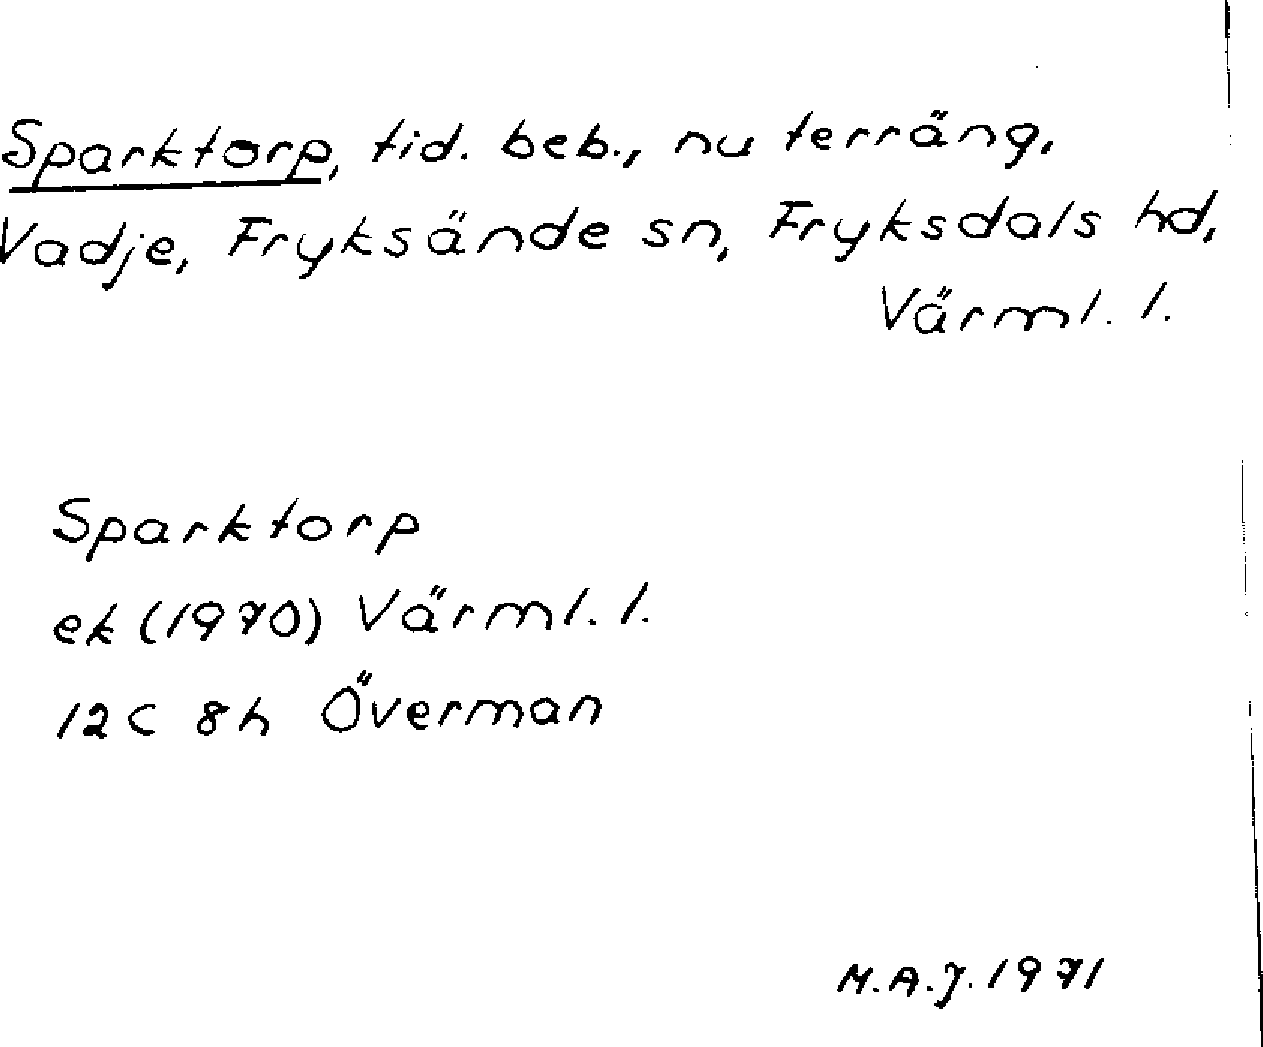 Sparktorp, tid. beb., nu terräng,
Vadje, Fryksände sn, Fryksdals hd,
Värml. l.
Sparktorp
ek (1970) Värml. l.
12C 8h Överman
M.A.J. 1971